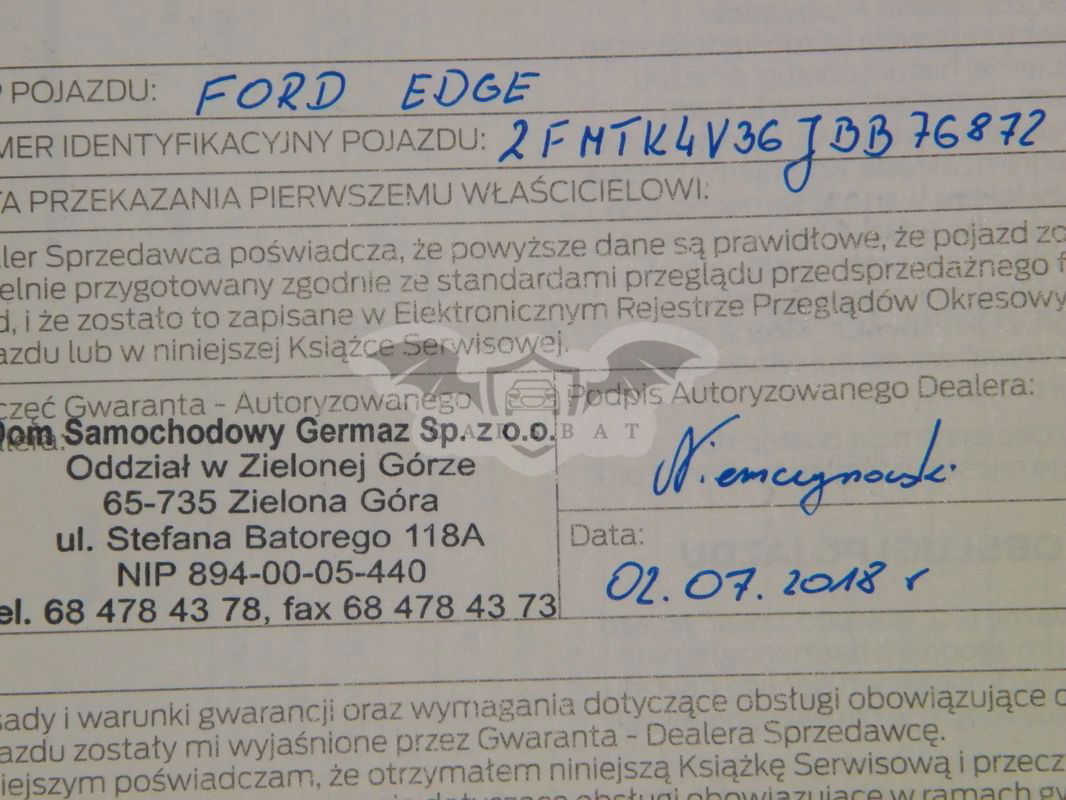 POJAZDU: FORD EDGE
MER IDENTYFIKACYJNY POJAZDU: 2FMTK4V36JBB76872
TA PRZEKAZANIA PIERWSZEMU WŁAŚCICIELOWI:
ler Sprzedawca poświadcza, że powyższe dane są prawidłowe, że pojazd zo
elnie przygotowany zgodnie ze standardami przeglądu przedsprzedażnego f
d, i że zostało to zapisane w Elektronicznym Rejestrze Przeglądów Okresowy
azdu lub w niniejszej Książce Serwisowej.
częć Gwaranta - Autoryzowanego
alera:
Dom Samochodowy Germaz Sp. z o.o.
Oddział w Zielonej Górze
65-735 Zielona Góra
ul. Stefana Batorego 118A
NIP 894-00-05-440
el. 68 478 43 78, fax 68 478 43 73
Podpis Autoryzowanego Dealera:
Niemczynowski
Data:
02.07.2018 r
sady i warunki gwarancji oraz wymagania dotyczące obsługi obowiązujące d
azdu zostały mi wyjaśnione przez Gwaranta - Dealera Sprzedawcę.
iejszym poświadczam, że otrzymałem niniejszą Książkę Serwisową i przecz
dotyczące obsługi obowiązujące w ramach gw